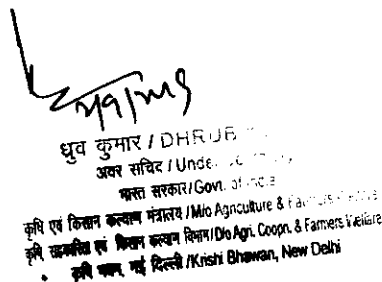 ध्रुव कुमार / DHRUB
अवर सचिव / Under
भारत सरकार/Govt. of India
कृषि एवं किसान कल्याण मंत्रालय / M/o Agriculture & Farmers
कृषि सहकारिता एवं किसान कल्याण विभाग/D/o Agri. Coopn. & Farmers Welfare
कृषि भवन, नई दिल्ली /Krishi Bhawan, New Delhi